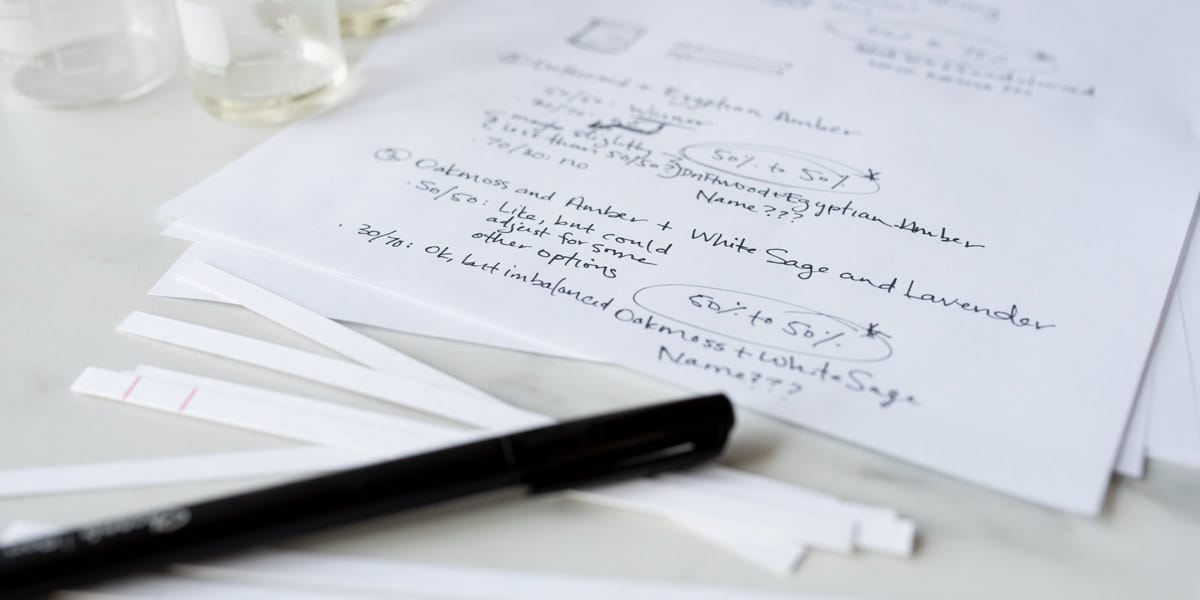 30
+ Egyptian Amber
50/50: Winner
30/70:
maybe slightly
less than 50/50?
70/30: no
50% to 50% *
Driftwood + Egyptian Amber
Name???
Oakmoss and Amber + White Sage and Lavender
50/50: Like, but could
adjust for some
other options
30/70: Ok, but imbalanced
50% to 50% *
Oakmoss + White Sage
Name???